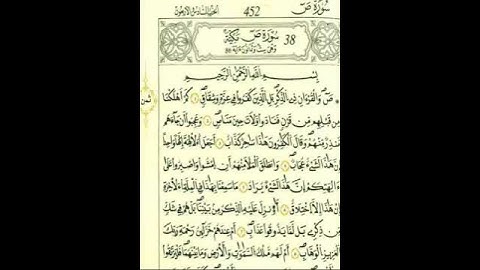 سُورَةُ صٓ
452
الحزب السادس والأربعون
38 سُورَةُ صٓ مَكِّيَّة
وهي ست وثمانون آية
بِسْمِ اللَّهِ الرَّحْمَٰنِ الرَّحِيمِ
صٓ وَالْقُرْءَانِ ذِي الذِّكْرِ بَلِ الَّذِينَ كَفَرُوا فِي عِزَّةٍ وَشِقَاقٍ كَمْ أَهْلَكْنَا
ثمن
مِن قَبْلِهِم مِّن قَرْنٍ فَنَادَوا وَّلَاتَ حِينَ مَنَاصٍ وَعَجِبُوا أَن جَاءَهُم
مُّنذِرٌ مِّنْهُمْ وَقَالَ الْكَٰفِرُونَ هَٰذَا سَٰحِرٌ كَذَّابٌ أَجَعَلَ الْآلِهَةَ إِلَٰهًا وَٰحِدًا
إِنَّ هَٰذَا لَشَيْءٌ عُجَابٌ وَانطَلَقَ الْمَلَأُ مِنْهُمْ أَنِ امْشُوا وَاصْبِرُوا عَلَىٰ
آلِهَتِكُمْ إِنَّ هَٰذَا لَشَيْءٌ يُرَادُ مَا سَمِعْنَا بِهَٰذَا فِي الْمِلَّةِ الْآخِرَةِ
إِنْ هَٰذَا إِلَّا اخْتِلَٰقٌ أَءُنزِلَ عَلَيْهِ الذِّكْرُ مِن بَيْنِنَا بَلْ هُمْ فِي شَكٍّ
مِّن ذِكْرِي بَل لَّمَّا يَذُوقُوا عَذَابِ أَمْ عِندَهُمْ خَزَائِنُ رَحْمَةِ رَبِّكَ
الْعَزِيزِ الْوَهَّابِ أَمْ لَهُم مُّلْكُ السَّمَٰوَٰتِ وَالْأَرْضِ وَمَا بَيْنَهُمَا فَلْيَرْتَقُوا